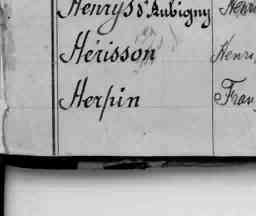 Henrys d'Aubigny Henr
Hérisson Henri
Herpin Fran